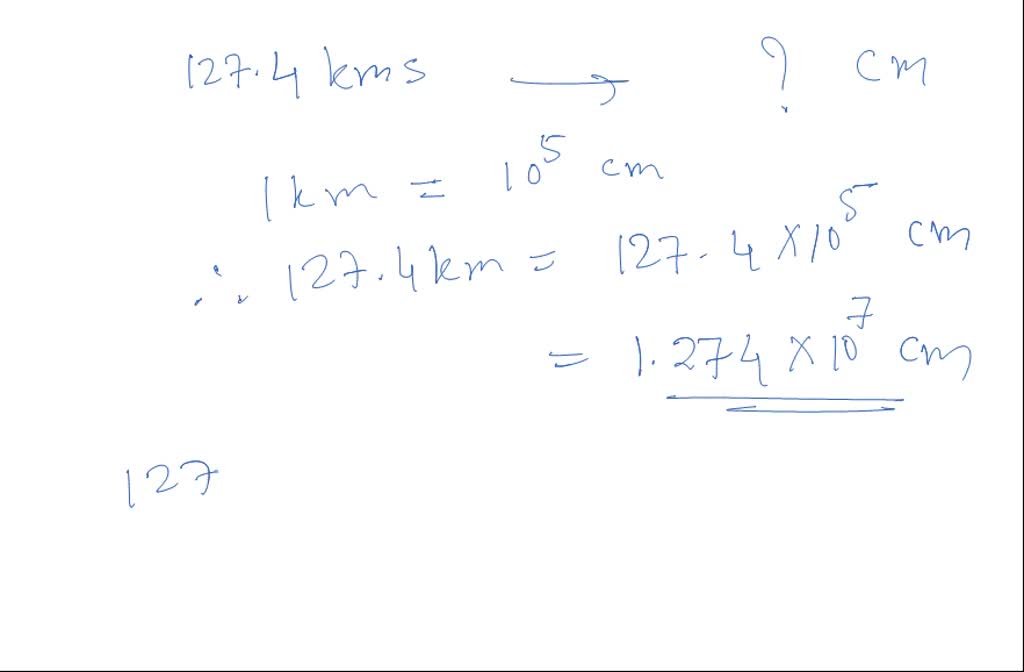 127.4 kms → ? cm
1 km = 10⁵ cm
∴ 127.4 km = 127.4 × 10⁵ cm
= 1.274 × 10⁷ cm
127